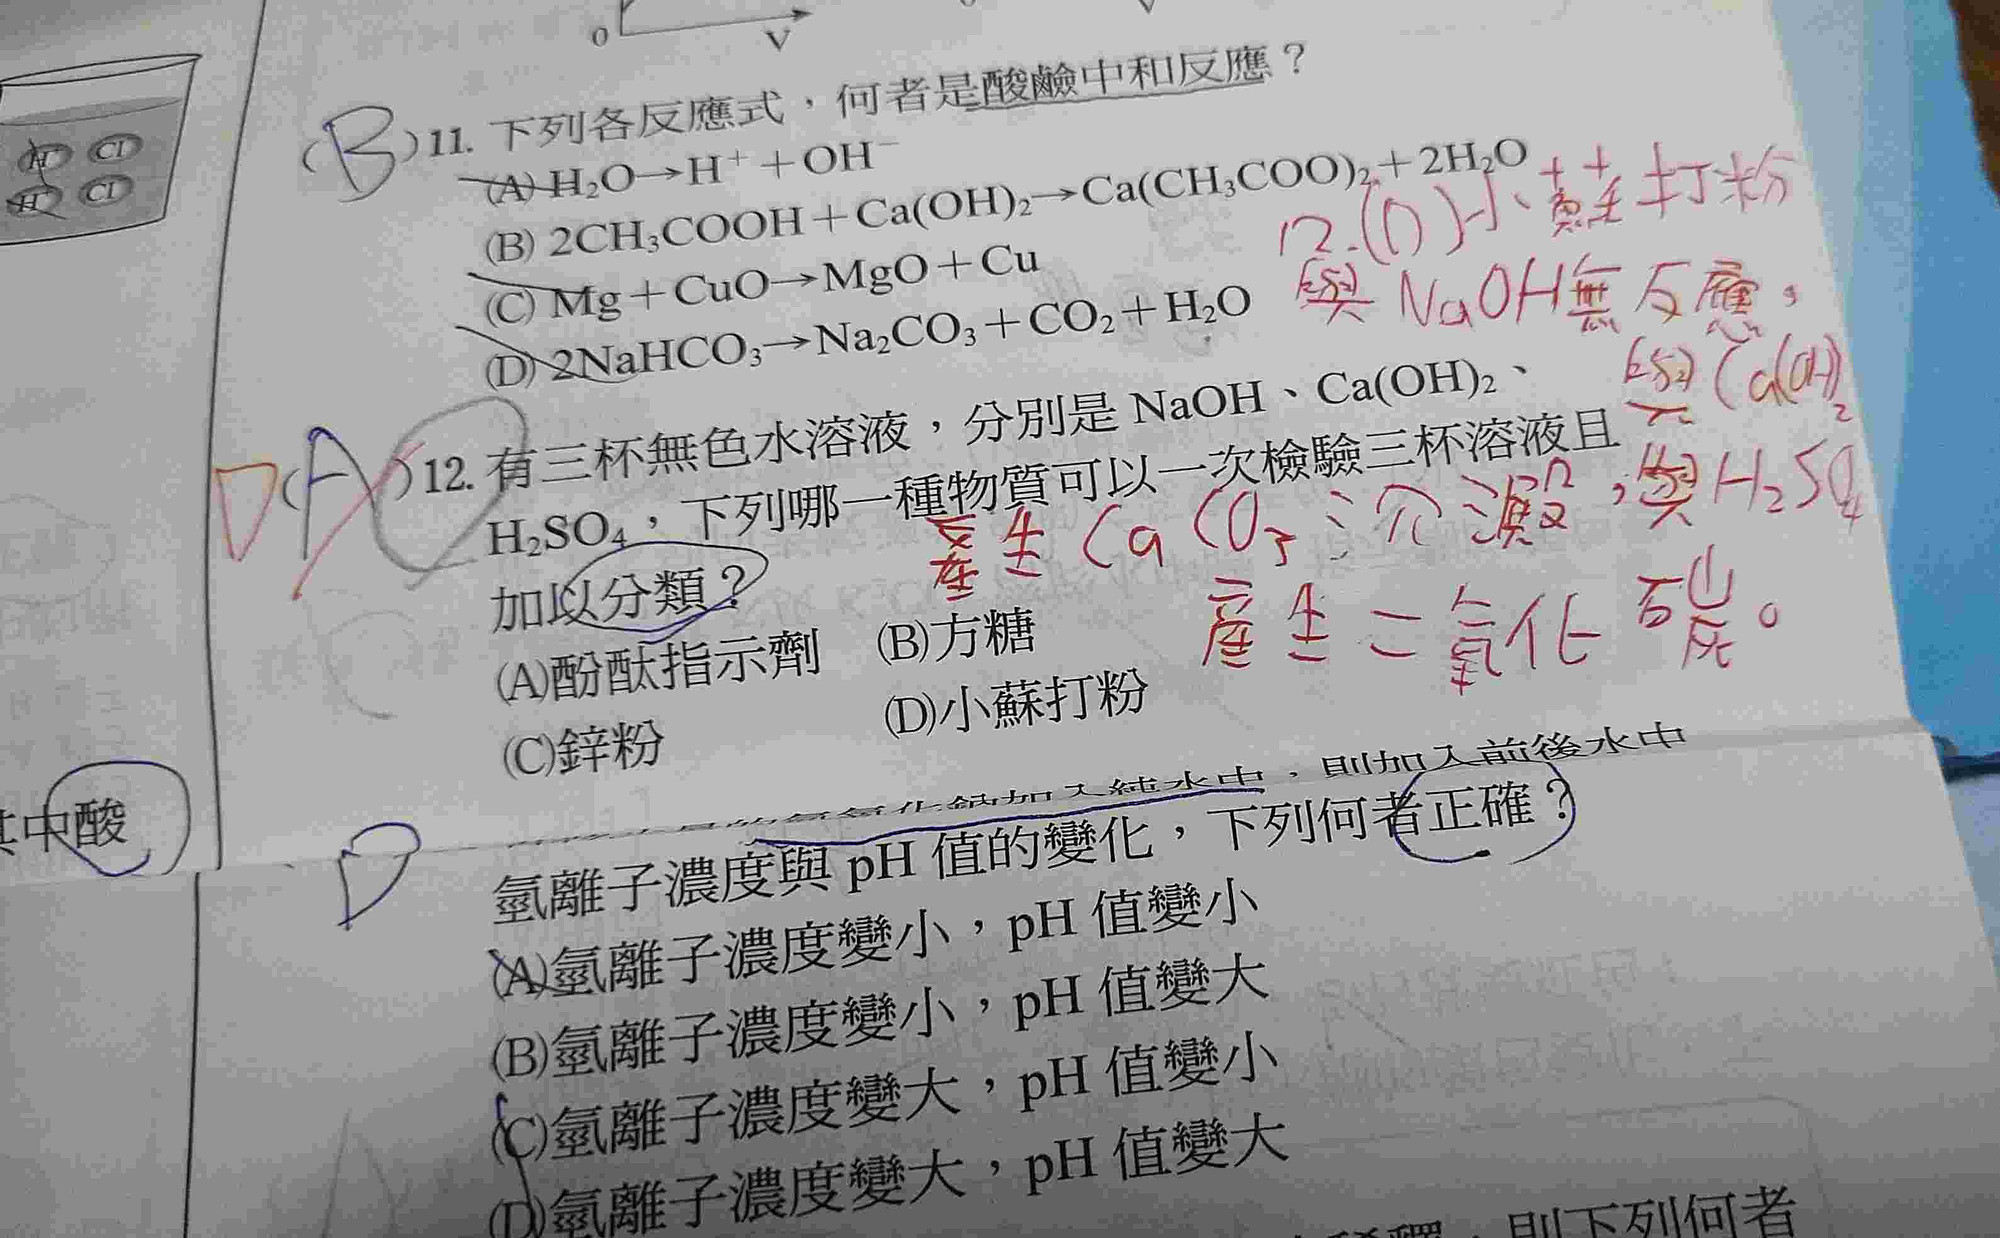 0
V
H⁺
Cl⁻
H⁺
Cl⁻
(B)11. 下列各反應式，何者是酸鹼中和反應？
(A) H₂O→H⁺＋OH⁻
(B) 2CH₃COOH＋Ca(OH)₂→Ca(CH₃COO)₂＋2H₂O
(C) Mg＋CuO→MgO＋Cu
(D) 2NaHCO₃→Na₂CO₃＋CO₂＋H₂O
12.(D)小蘇打粉
與NaOH無反應，
與Ca(OH)₂
產生CaCO₃沉澱，與H₂SO₄
產生二氧化碳。
D(A)12. 有三杯無色水溶液，分別是 NaOH、Ca(OH)₂、
H₂SO₄，下列哪一種物質可以一次檢驗三杯溶液且
加以分類？
(A)酚酞指示劑 (B)方糖
(C)鋅粉 (D)小蘇打粉
其中酸
氫氧化鈉加入純水中，則加入前後水中
D
氫離子濃度與 pH 值的變化，下列何者正確？
(A)氫離子濃度變小，pH 值變小
(B)氫離子濃度變小，pH 值變大
(C)氫離子濃度變大，pH 值變小
(D)氫離子濃度變大，pH 值變大
稀釋，則下列何者